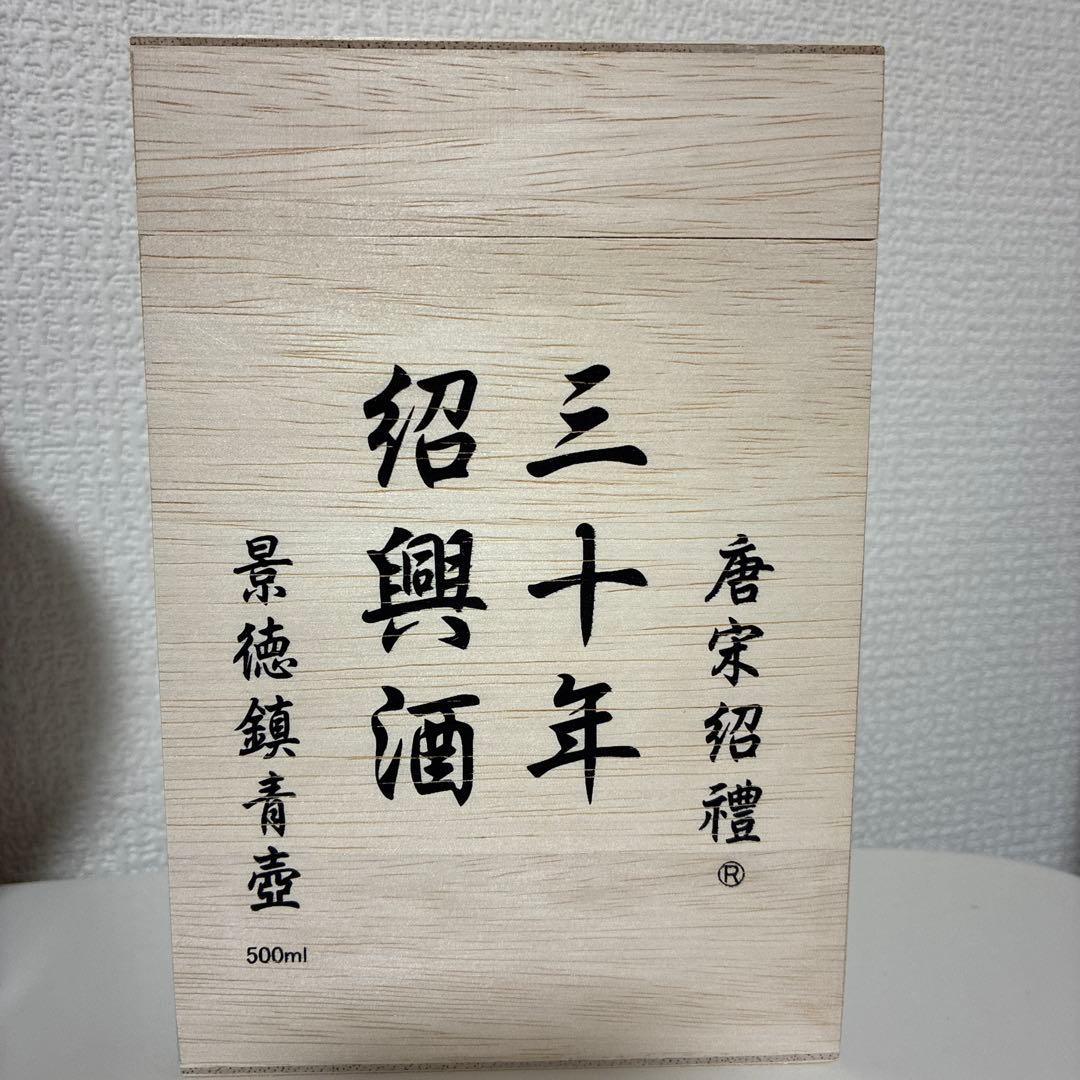 唐宋紹禮®
三十年
紹興酒
景徳鎮青壺
500ml